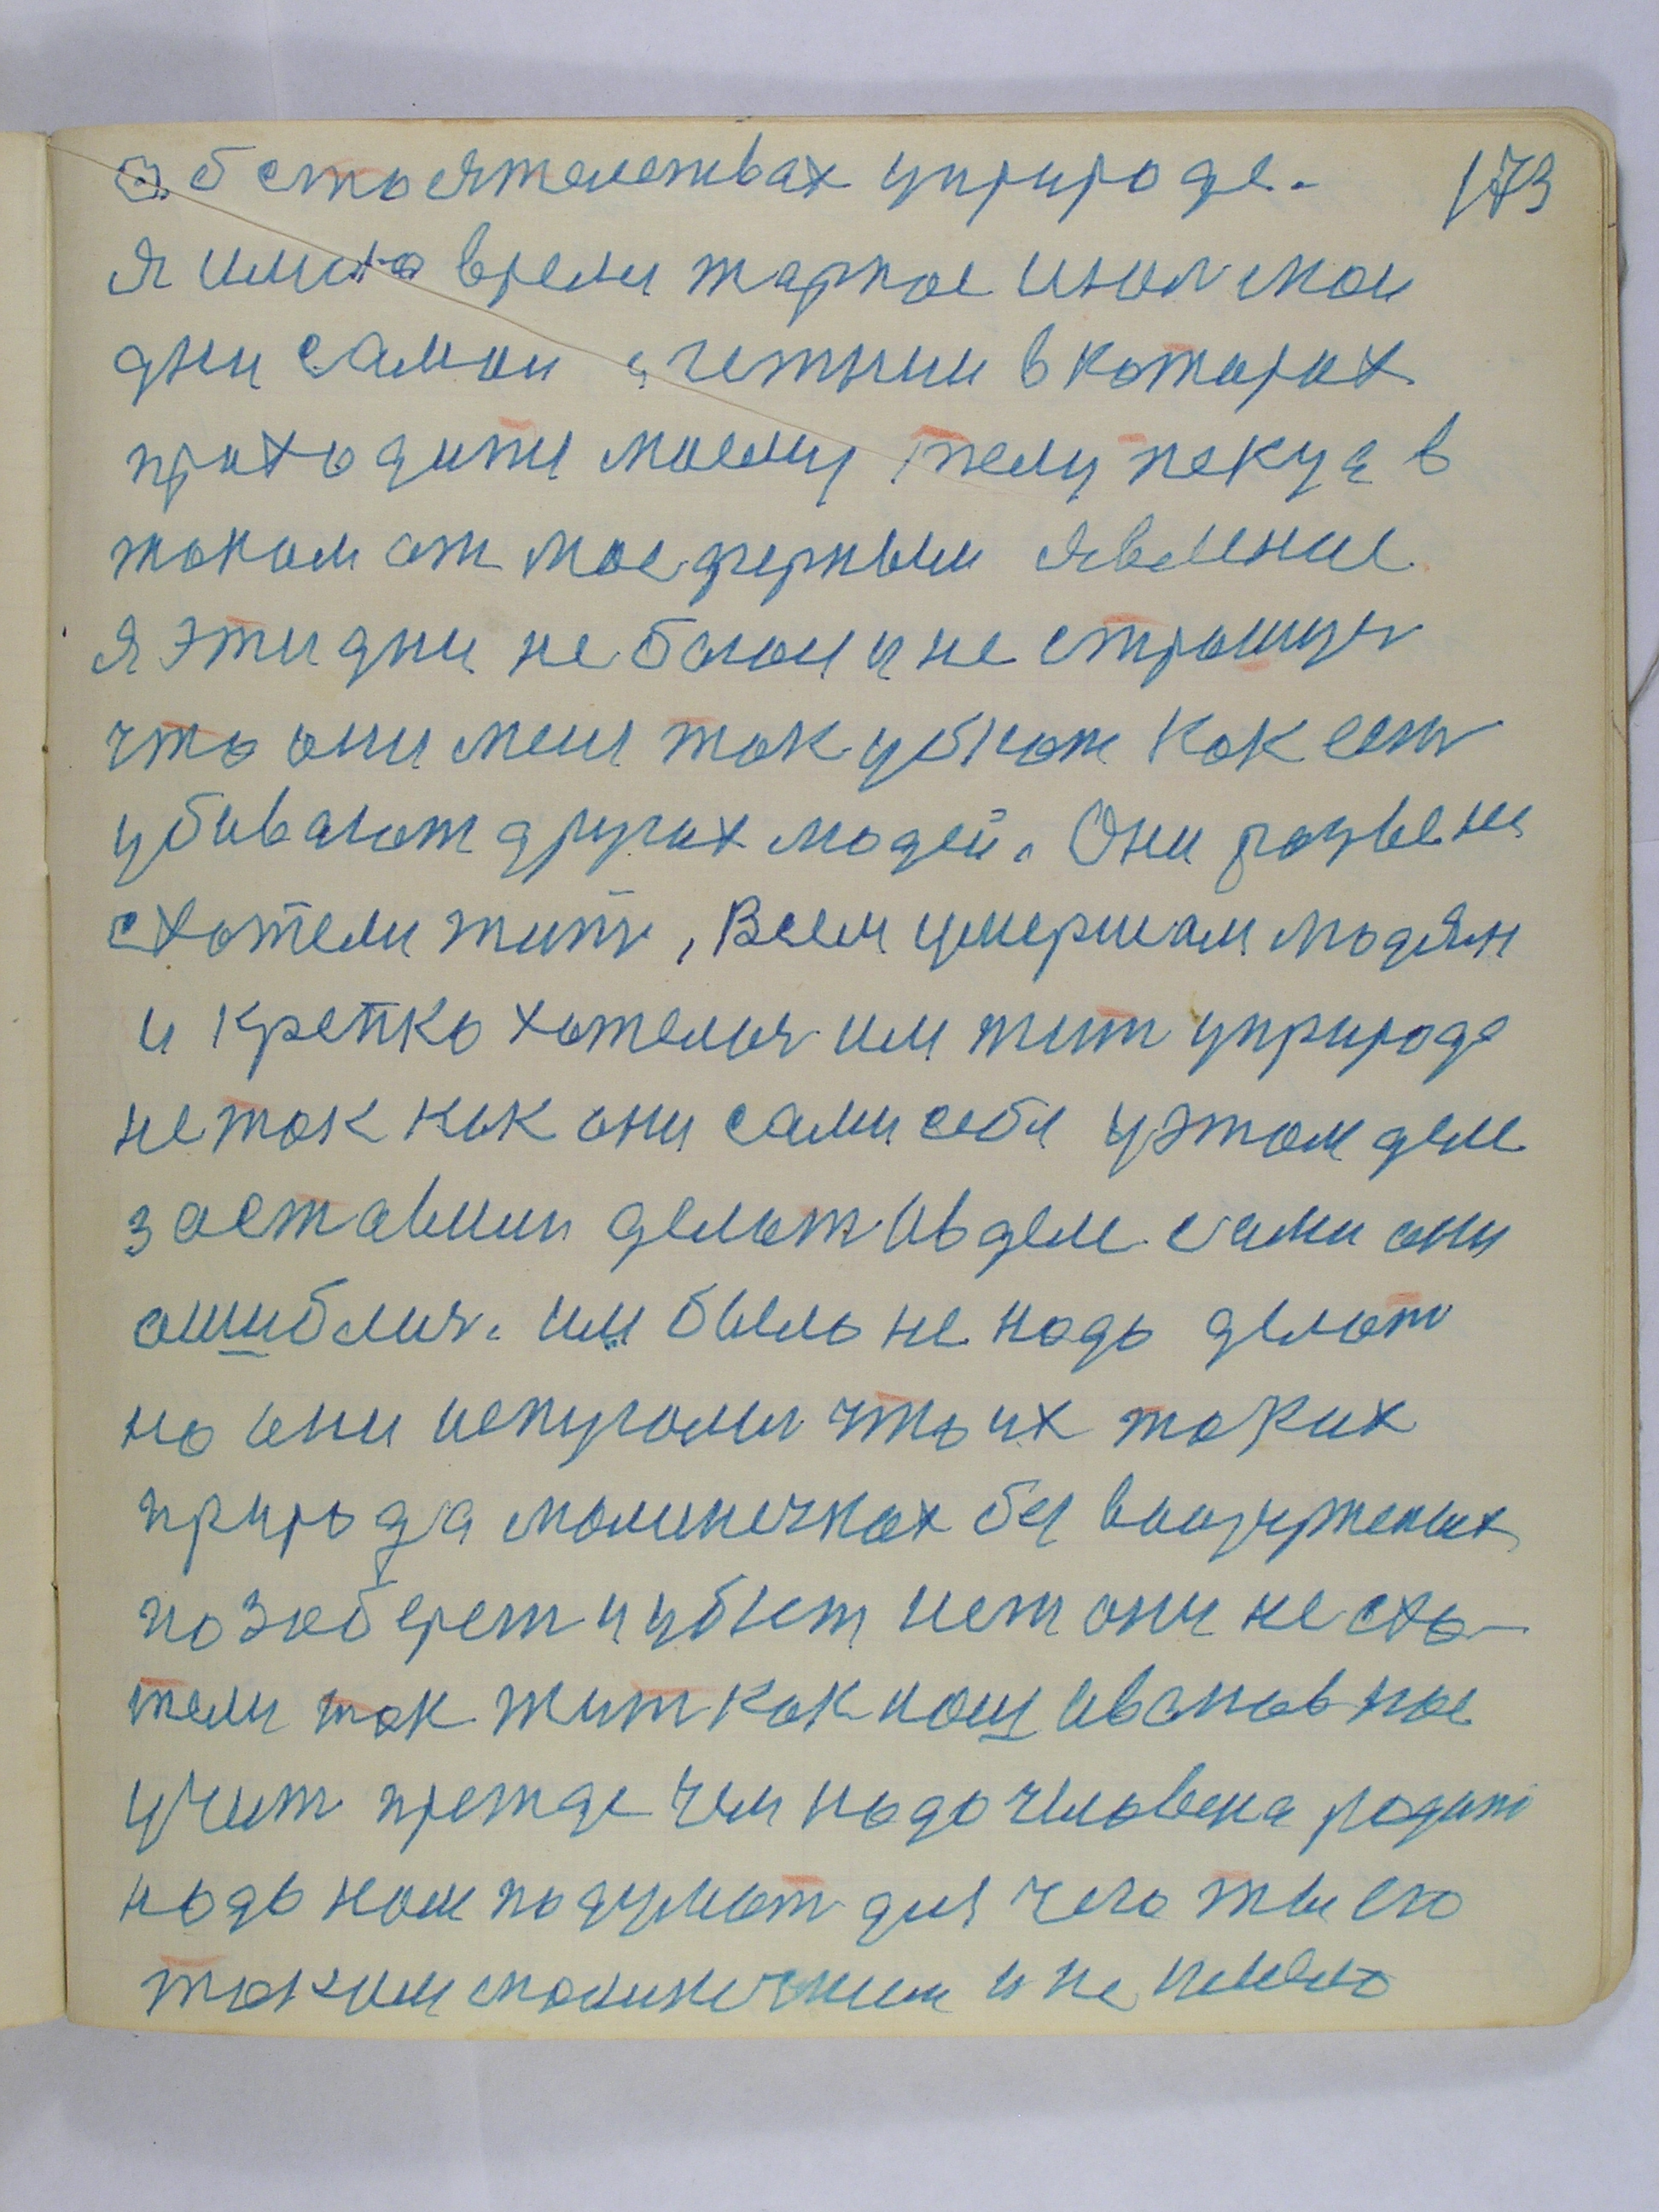 обстоятелествах уприроде. 173
я имино время жаркое июля мои
дни самои счетнии в которах
проходити моему телу покуда в
таком атмосдерным явление
я эти дни не боюся и не страшуся
что они меня так убют как есть
убивают других людей. Они разве не
схотели жить, Всем умершим людям
и крепко хотелися им жит уприроде
не так как они сами себя уэтом деле
заставили делат ивделе сами они
ошиблися. им было не надо делать
но они испугалис что их таких
природа малинечках без вооружених
позаберет и убют нет они не схо-
тели так жит как нащ ивановнае
учит прежде чем надо человека родить
надо нам подумат для чего ты его
таким малинечким и не